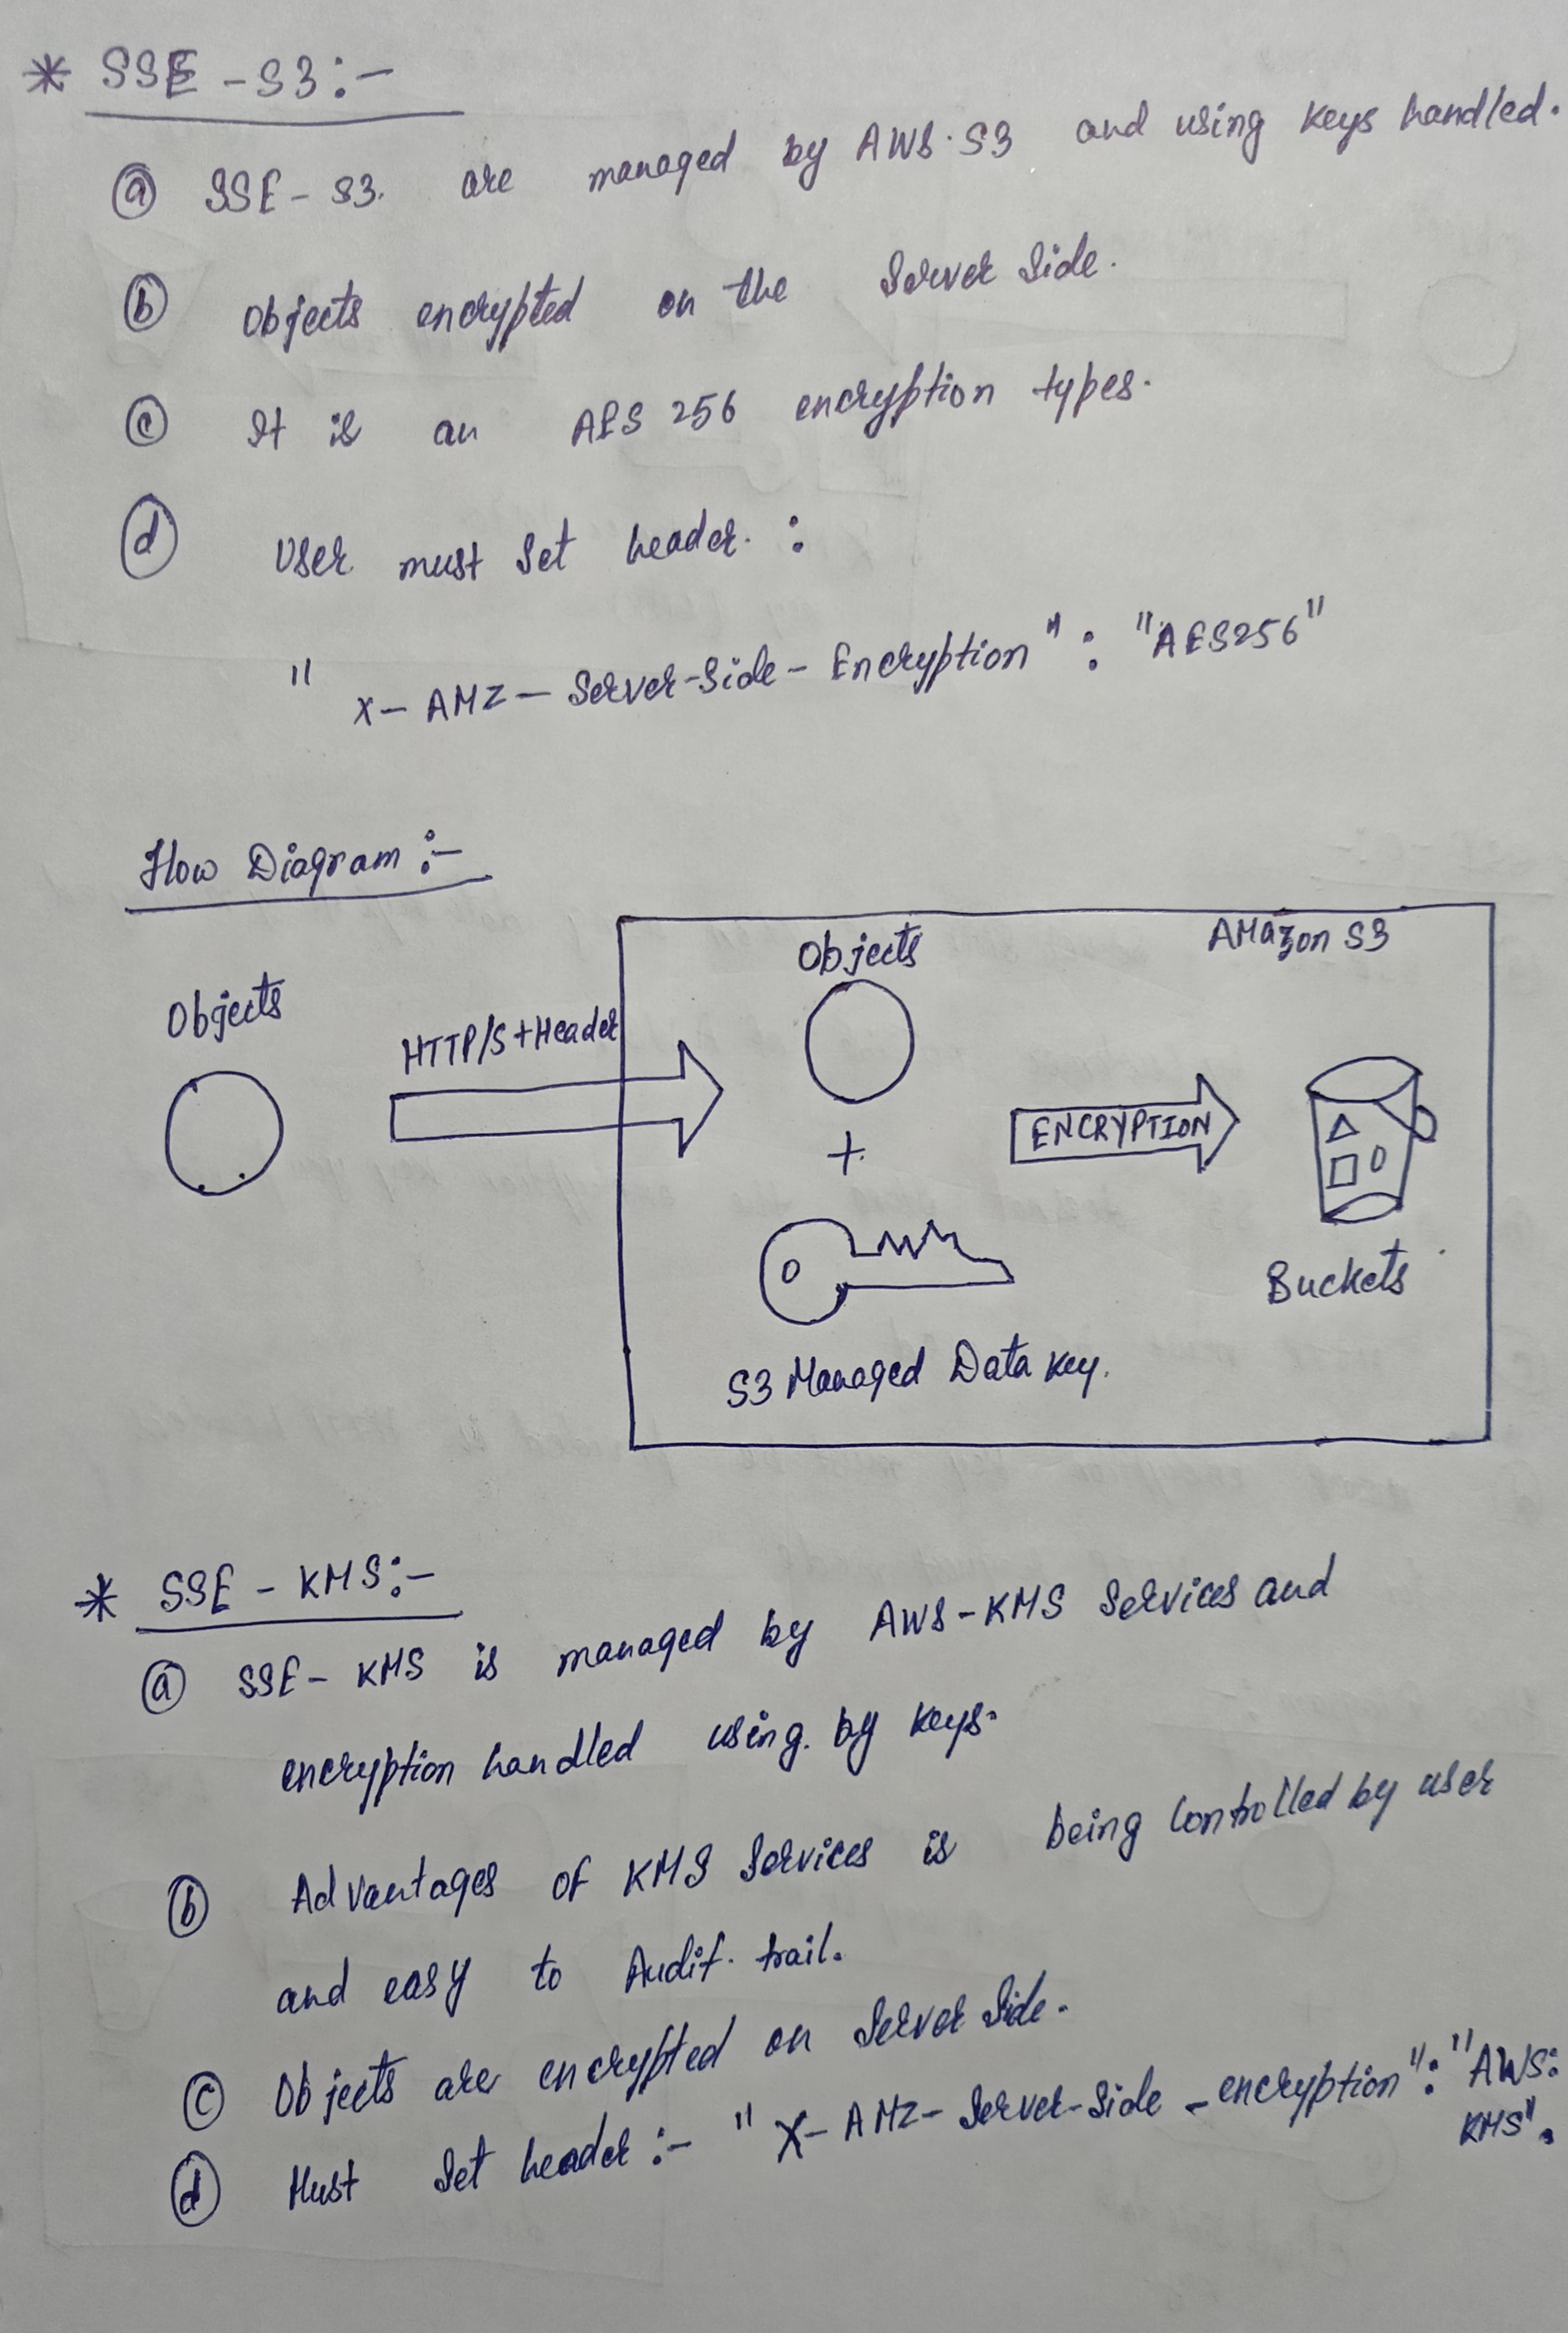 * SSE - S3:-
(a) SSE - S3. are managed by AWS. S3 and using keys handled.
(b) Objects encrypted on the Server Side.
(c) It is an AES 256 encryption types.
(d) User must Set header. :
" X - AMZ - Server-Side - Encryption " : "AES256"
Flow Diagram :-
Objects
HTTP/S + Header
Objects
AMazon S3
+
ENCRYPTION
Buckets
S3 Managed Data key.
* SSE - KMS:-
(a) SSE - KMS is managed by AWS - KMS Services and
encryption handled using. by keys.
(b) Advantages of KMS Services is being Controlled by user
and easy to Audit. trail.
(c) Objects are encrypted on Server Side.
(d) Must Set header :- " X - AMZ - Server-Side - encryption " : "AWS:
KMS".